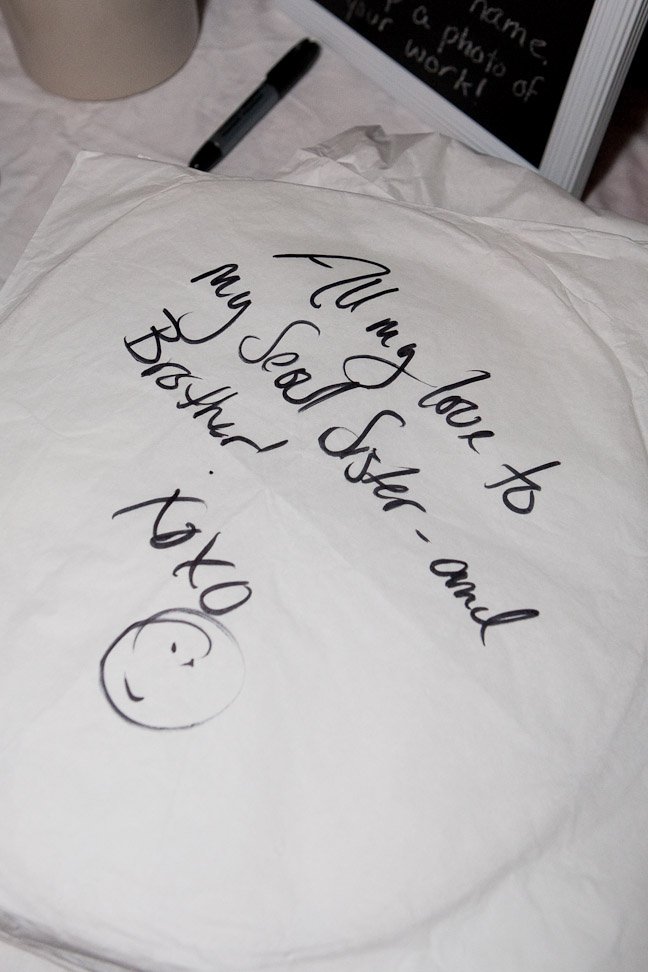 name.
p a photo of
your work!
All my love to
my Seoul Sister - and
Brother!
xoxo